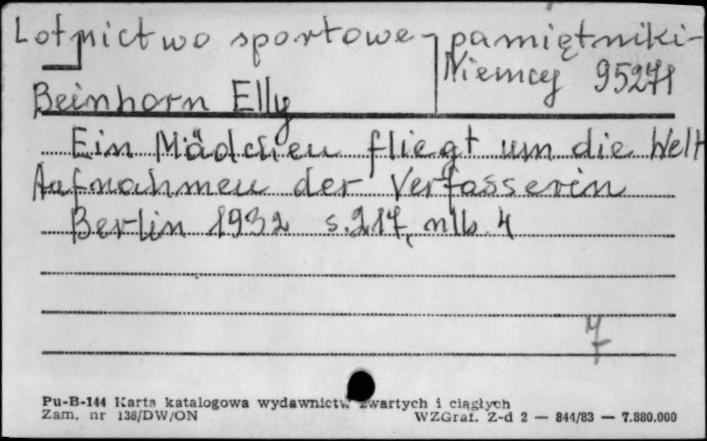 Lotnictwo sportowe - pamiętniki -
Niemcy 95271
Beinhorn Elly
Ein Mädchen fliegt um die Welt
Aufnahmen der Verfasserin
Berlin 1932 s. 217, nlb. 4
7
Pu-B-144 Karta katalogowa wydawnictw zwartych i ciągłych
Zam. nr 136/DW/ON WZGraf. Z-d 2 — 844/83 — 7.880.000